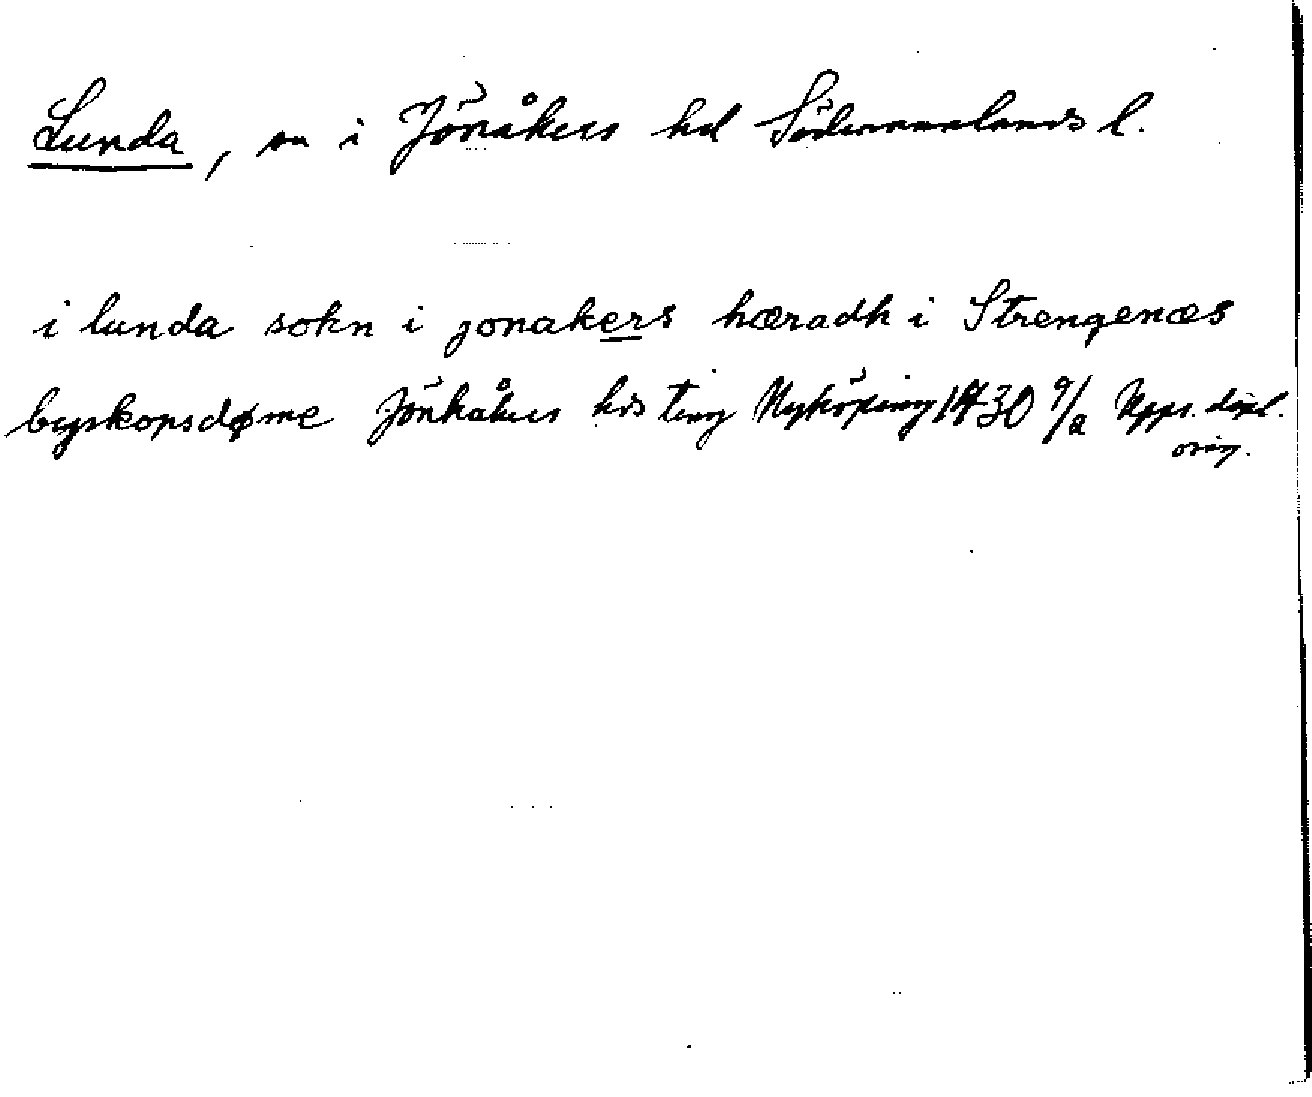 Lunda, sn i Jönåkers hd Södermanlands l.
i lunda sokn i jonakers hæradh i Strengenæs
byskopsdøme Jönkåkers hds ting Nyköping 1430 9/2 Upps. dipl.
orig.